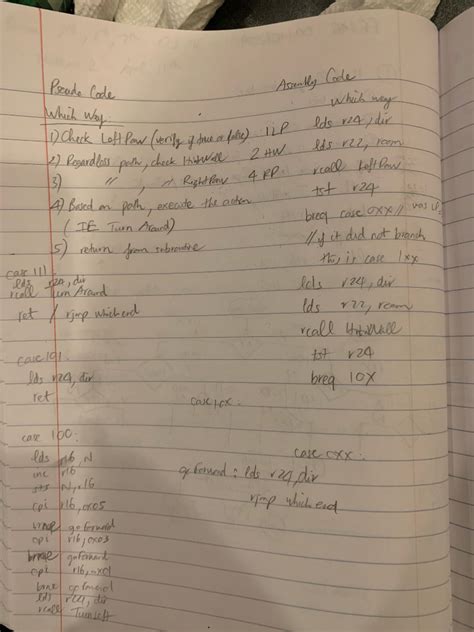 Pseudo Code
Which Way:
1) Check LeftPaw (verify if true or false) 1 LP
2) Regardless path, check HitWall 2 HW
3) " " , " RightPaw 4 RP
4) Based on path, execute the action
( IE Turn Around)
5) return from subroutine
case 111:
lds r24, dir
rcall Turn Around
ret / rjmp whichend
case 101:
lds r24, dir
ret
case 100:
lds r16, N
inc r16
sts N, r16
cpi r16, 0x05
goForward
cpi r16, 0x03
goForward
cpi r16,
brne goForward
lds r24, dir
rcall TurnLeft
Assembly Code
Which way
lds r24, dir
lds r22, room
rcall LeftPaw
tst r24
breq case 0xx //
// if it did not branch
this is case 1xx
lds r24, dir
lds r22, room
rcall HitWall
tst r24
breq 10X
case 0xx:
goForward: lds r24, dir
rjmp whichend